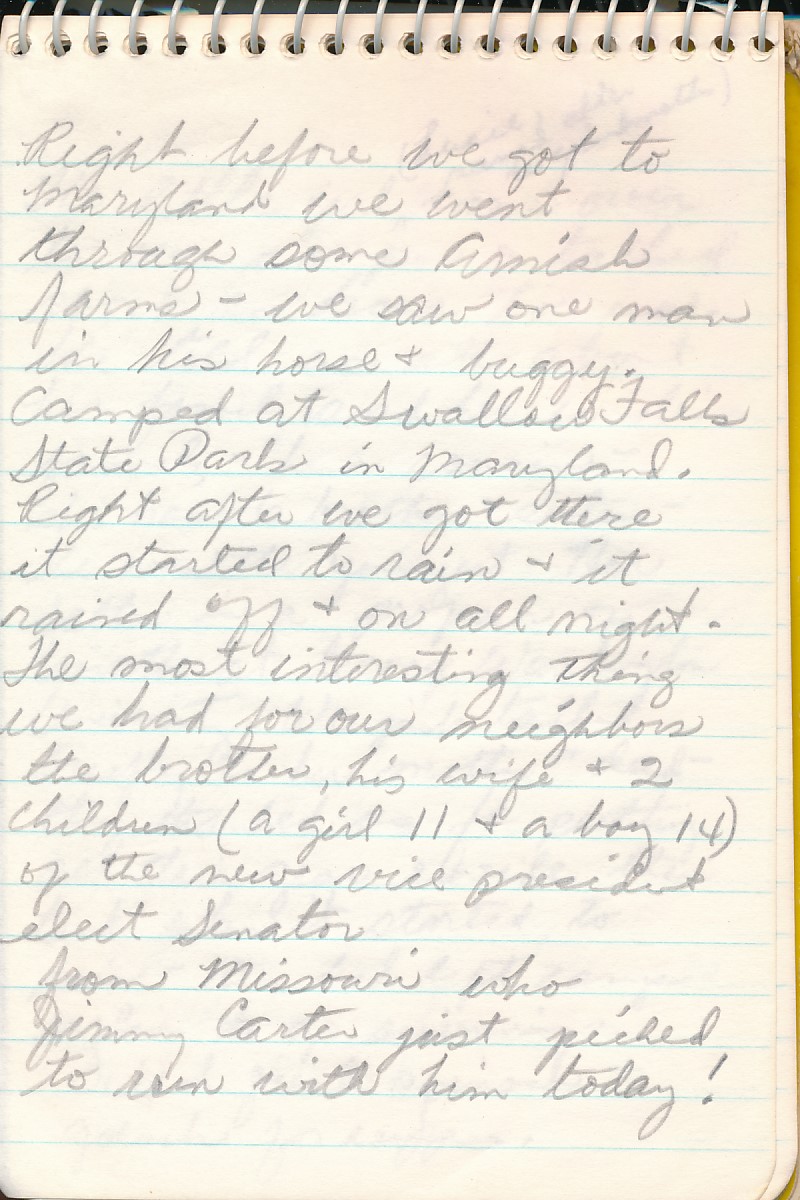 Right before we got to
Maryland we went
through some Amish
farms - we saw one man
in his horse & buggy.
Camped at Swallow Falls
State Park in Maryland.
Right after we got there
it started to rain & it
rained off & on all night.
The most interesting thing
we had for our neighbors
the brother, his wife & 2
children (a girl 11 & a boy 14)
of the new vice president
elect Senator
from Missouri who
Jimmy Carter just picked
to run with him today!